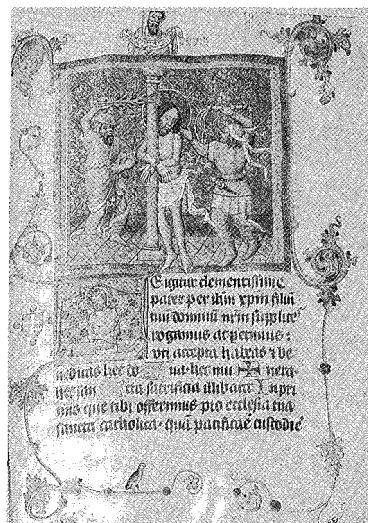 E igitur clementissime
pater per ihm xpm filiū
tuū dominū nrm supplices
rogamus ac petimus:
vti accepta habeas & be
nedicas hec do
hec san sacrificia illibata Inpri
mis que tibi offerimus pro ecclesia tua
sancta catholica · quā pacificare custodire